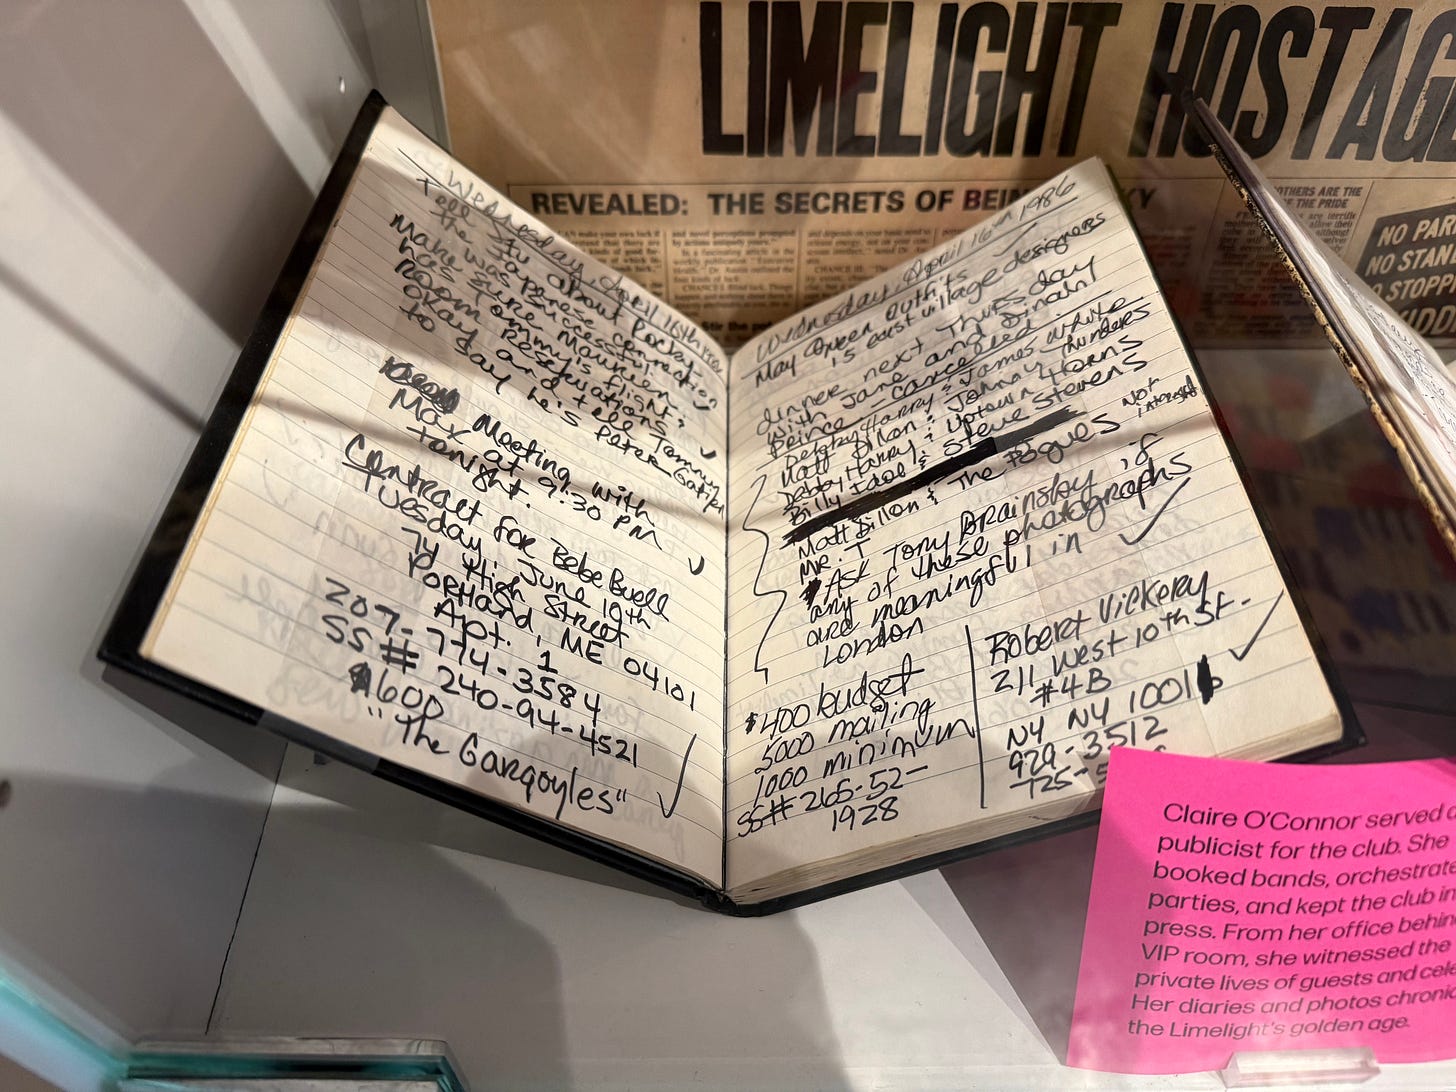 LIMELIGHT HOSTAG
REVEALED: THE SECRETS OF BEIN
NO PAR
NO STAN
STOPP
Wednesday, April 16th
Tell the SIr about Rocky
the Japanese connection
Make sure Maurice
has Tommy's flight
room reservations
Okay and tell Tommy
to day he's Peter Gatien
Meeting with
Max at 9:30 PM
tonight.
Contract for Bebe Buell
Tuesday, June 10th
74 High Street
Portland, ME 04101
Apt. 1
207-774-3584
SS #
$1600
"The Gargoyles"
Wednesday, April 16th 1986
May Queen outfits
is east village designers
dinner next Thursday
with Jane and Dinah
Prince - cancelled
Debby Harry & James White
Matt Dillon & Johnny Thunders
Debby Harry & Uptown Horns
Billy Idol & Steve Stevens
Not
interested
Matt Dillon & The Pogues
Mr. T
Ask Tony Brainsby if
any of these photographs
are meaningful in
London
$400 budget
5000 mailing
1000 minimum
SS#
Robert Vickery
211 West 10th St.
#4B
NY NY 1001
929-3512
725-5
Claire O'Connor served
publicist for the club. She
booked bands, orchestrate
parties, and kept the club in
press. From her office behin
VIP room, she witnessed the
private lives of guests and cele
Her diaries and photos chronic
the Limelight's golden age.